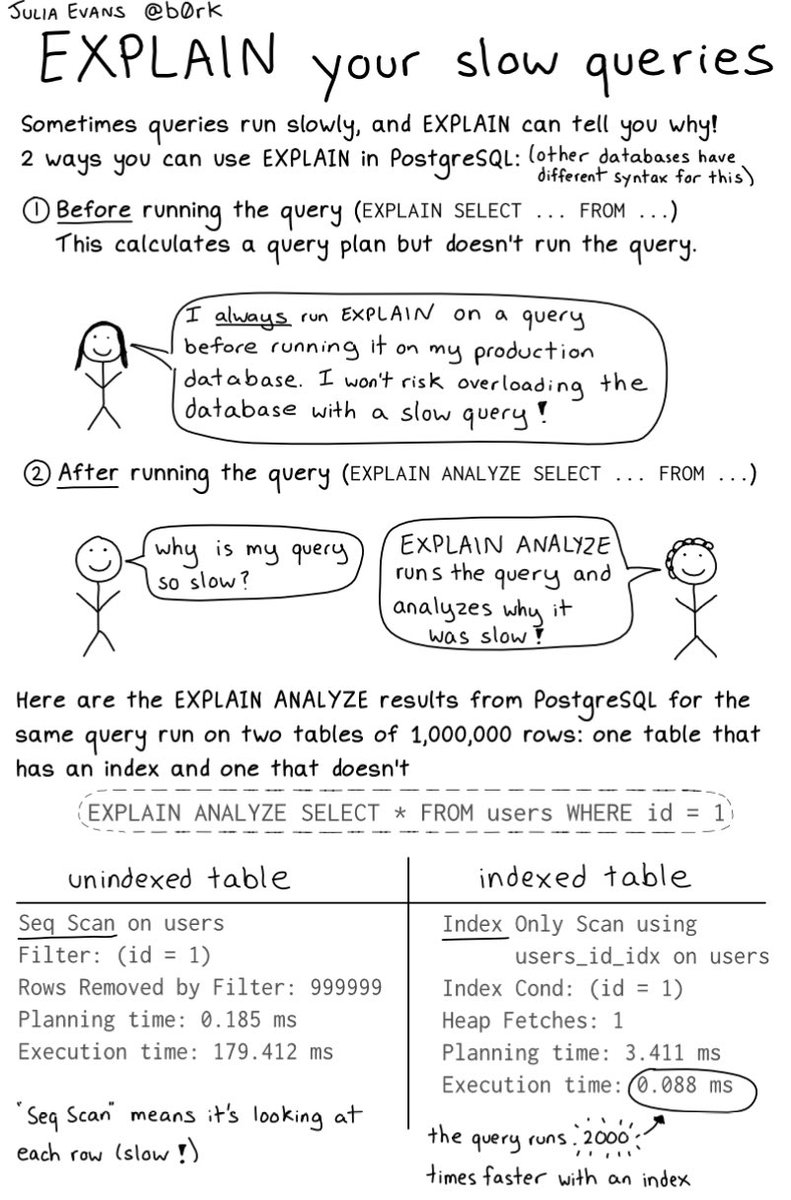 JULIA EVANS @b0rk
EXPLAIN your slow queries
Sometimes queries run slowly, and EXPLAIN can tell you why!
2 ways you can use EXPLAIN in PostgreSQL: (other databases have
different syntax for this)
① Before running the query (EXPLAIN SELECT ... FROM ...)
This calculates a query plan but doesn't run the query.
I always run EXPLAIN on a query
before running it on my production
database. I won't risk overloading the
database with a slow query!
② After running the query (EXPLAIN ANALYZE SELECT ... FROM ...)
why is my query
so slow?
EXPLAIN ANALYZE
runs the query and
analyzes why it
was slow!
Here are the EXPLAIN ANALYZE results from PostgreSQL for the
same query run on two tables of 1,000,000 rows: one table that
has an index and one that doesn't
EXPLAIN ANALYZE SELECT * FROM users WHERE id = 1
unindexed table
Seq Scan on users
Filter: (id = 1)
Rows Removed by Filter: 999999
Planning time: 0.185 ms
Execution time: 179.412 ms
"Seq Scan" means it's looking at
each row (slow!)
indexed table
Index Only Scan using
users_id_idx on users
Index Cond: (id = 1)
Heap Fetches: 1
Planning time: 3.411 ms
Execution time: 0.088 ms
the query runs 2000
times faster with an index